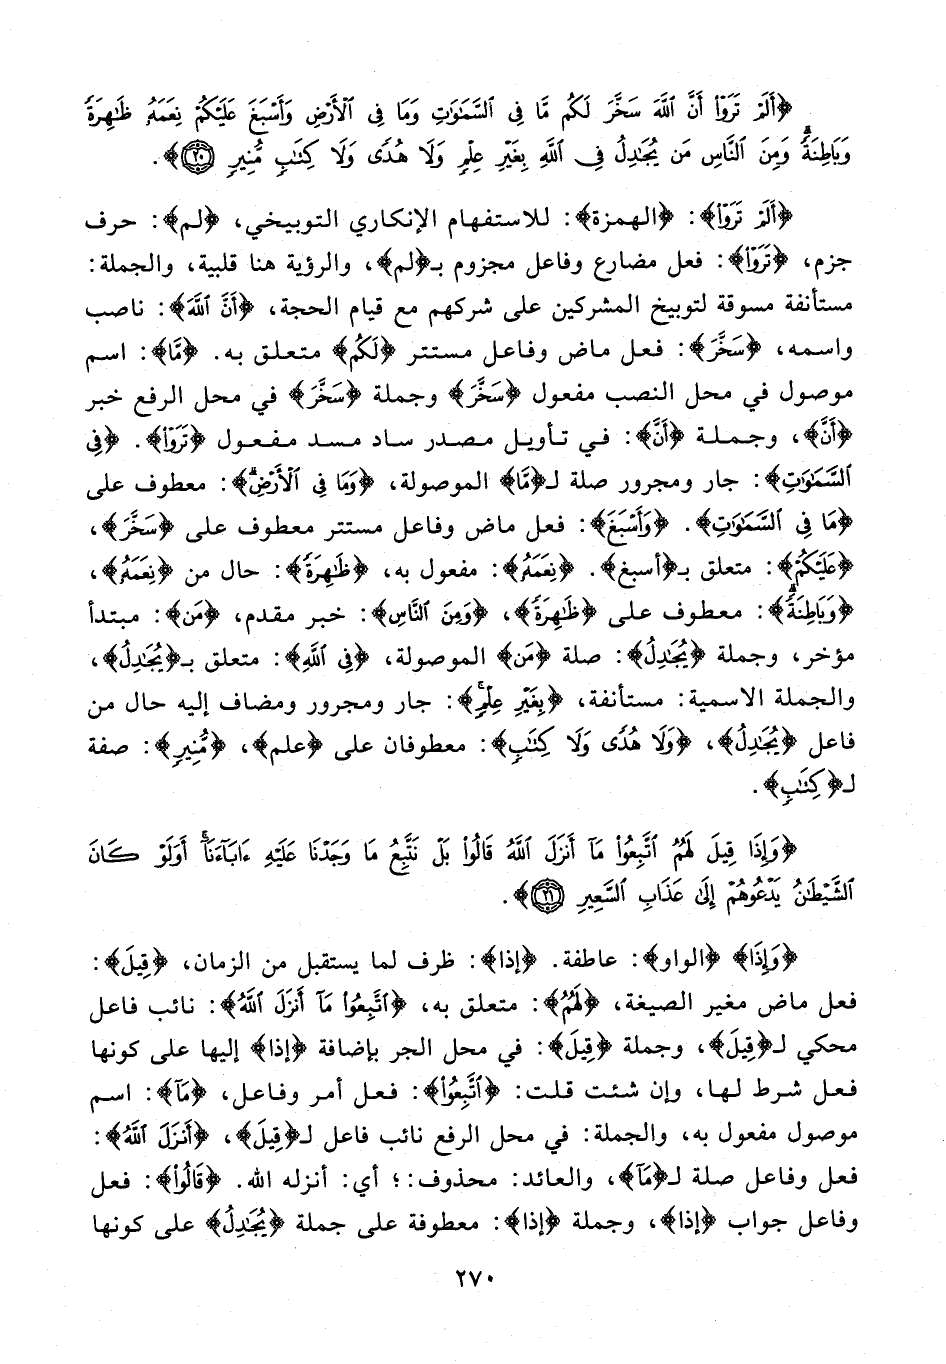 ﴿أَلَمْ تَرَوْا أَنَّ اللَّهَ سَخَّرَ لَكُم مَّا فِى السَّمَٰوَٰتِ وَمَا فِى الْأَرْضِ وَأَسْبَغَ عَلَيْكُمْ نِعَمَهُۥ ظَٰهِرَةً
وَبَاطِنَةً ۗ وَمِنَ النَّاسِ مَن يُجَٰدِلُ فِى اللَّهِ بِغَيْرِ عِلْمٍ وَلَا هُدًى وَلَا كِتَٰبٍ مُّنِيرٍ ﴿٢٠﴾﴾.
﴿أَلَمْ تَرَوْا﴾: ﴿الهمزة﴾: للاستفهام الإنكاري التوبيخي، ﴿لم﴾: حرف
جزم، ﴿تَرَوْا﴾: فعل مضارع وفاعل مجزوم بـ﴿لم﴾، والرؤية هنا قلبية، والجملة:
مستأنفة مسوقة لتوبيخ المشركين على شركهم مع قيام الحجة، ﴿أَنَّ اللَّهَ﴾: ناصب
واسمه، ﴿سَخَّرَ﴾: فعل ماض وفاعل مستتر ﴿لَكُم﴾ متعلق به. ﴿مَّا﴾: اسم
موصول في محل النصب مفعول ﴿سَخَّرَ﴾ وجملة ﴿سَخَّرَ﴾ في محل الرفع خبر
﴿أَنَّ﴾، وجملة ﴿أَنَّ﴾: في تأويل مصدر ساد مسد مفعول ﴿تَرَوْا﴾. ﴿فِى
السَّمَٰوَٰتِ﴾: جار ومجرور صلة لـ﴿مَّا﴾ الموصولة، ﴿وَمَا فِى الْأَرْضِ﴾: معطوف على
﴿مَا فِى السَّمَٰوَٰتِ﴾. ﴿وَأَسْبَغَ﴾: فعل ماض وفاعل مستتر معطوف على ﴿سَخَّرَ﴾،
﴿عَلَيْكُمْ﴾: متعلق بـ﴿أسبغ﴾. ﴿نِعَمَهُۥ﴾: مفعول به، ﴿ظَٰهِرَةً﴾: حال من ﴿نِعَمَهُۥ﴾،
﴿وَبَاطِنَةً ۗ﴾: معطوف على ﴿ظَٰهِرَةً﴾، ﴿وَمِنَ النَّاسِ﴾: خبر مقدم، ﴿مَن﴾: مبتدأ
مؤخر، وجملة ﴿يُجَٰدِلُ﴾: صلة ﴿مَن﴾ الموصولة، ﴿فِى اللَّهِ﴾: متعلق بـ﴿يُجَٰدِلُ﴾،
والجملة الاسمية: مستأنفة، ﴿بِغَيْرِ عِلْمٍ﴾: جار ومجرور ومضاف إليه حال من
فاعل ﴿يُجَٰدِلُ﴾، ﴿وَلَا هُدًى وَلَا كِتَٰبٍ﴾: معطوفان على ﴿علم﴾، ﴿مُّنِيرٍ﴾: صفة
لـ﴿كِتَٰبٍ﴾.
﴿وَإِذَا قِيلَ لَهُمُ اتَّبِعُوا مَآ أَنزَلَ اللَّهُ قَالُوا بَلْ نَتَّبِعُ مَا وَجَدْنَا عَلَيْهِ ءَابَآءَنَا ۚ أَوَلَوْ كَانَ
الشَّيْطَٰنُ يَدْعُوهُمْ إِلَىٰ عَذَابِ السَّعِيرِ ﴿٢١﴾﴾.
﴿وَإِذَا﴾ ﴿الواو﴾: عاطفة. ﴿إذا﴾: ظرف لما يستقبل من الزمان، ﴿قِيلَ﴾:
فعل ماض مغير الصيغة، ﴿لَهُمُ﴾: متعلق به، ﴿اتَّبِعُوا مَآ أَنزَلَ اللَّهُ﴾: نائب فاعل
محكي لـ﴿قِيلَ﴾، وجملة ﴿قِيلَ﴾: في محل الجر بإضافة ﴿إذا﴾ إليها على كونها
فعل شرط لها، وإن شئت قلت: ﴿اتَّبِعُوا﴾: فعل أمر وفاعل، ﴿مَآ﴾: اسم
موصول مفعول به، والجملة: في محل الرفع نائب فاعل لـ﴿قِيلَ﴾، ﴿أَنزَلَ اللَّهُ﴾:
فعل وفاعل صلة لـ﴿مَآ﴾، والعائد: محذوف:؛ أي: أنزله الله. ﴿قَالُوا﴾: فعل
وفاعل جواب ﴿إذا﴾، وجملة ﴿إذا﴾: معطوفة على جملة ﴿يُجَٰدِلُ﴾ على كونها
٢٧٠